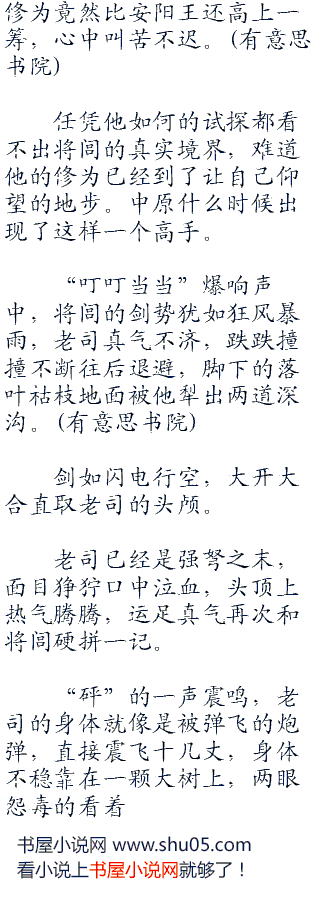 修为竟然比安阳王还高上一
筹，心中叫苦不迟。(有意思
书院)
任凭他如何的试探都看
不出将闾的真实境界，难道
他的修为已经到了让自己仰
望的地步。中原什么时候出
现了这样一个高手。
“叮叮当当”爆响声
中，将闾的剑势犹如狂风暴
雨，老司真气不济，跌跌撞
撞不断往后退避，脚下的落
叶枯枝地面被他犁出两道深
沟。(有意思书院)
剑如闪电行空，大开大
合直取老司的头颅。
老司已经是强弩之末，
面目狰狞口中泣血，头顶上
热气腾腾，运足真气再次和
将闾硬拼一记。
“砰”的一声震鸣，老
司的身体就像是被弹飞的炮
弹，直接震飞十几丈，身体
不稳靠在一颗大树上，两眼
怨毒的看着
书屋小说网 www.shu05.com
看小说上书屋小说网就够了！